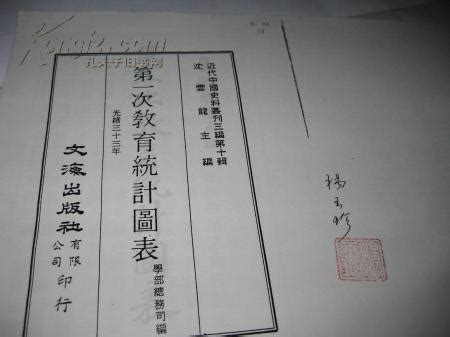 近代中國史料叢刊三編第十輯
沈雲龍主編
第一次教育統計圖表
光緒三十三年
學部總務司編
文海出版社有限公司印行
孔夫子旧书网